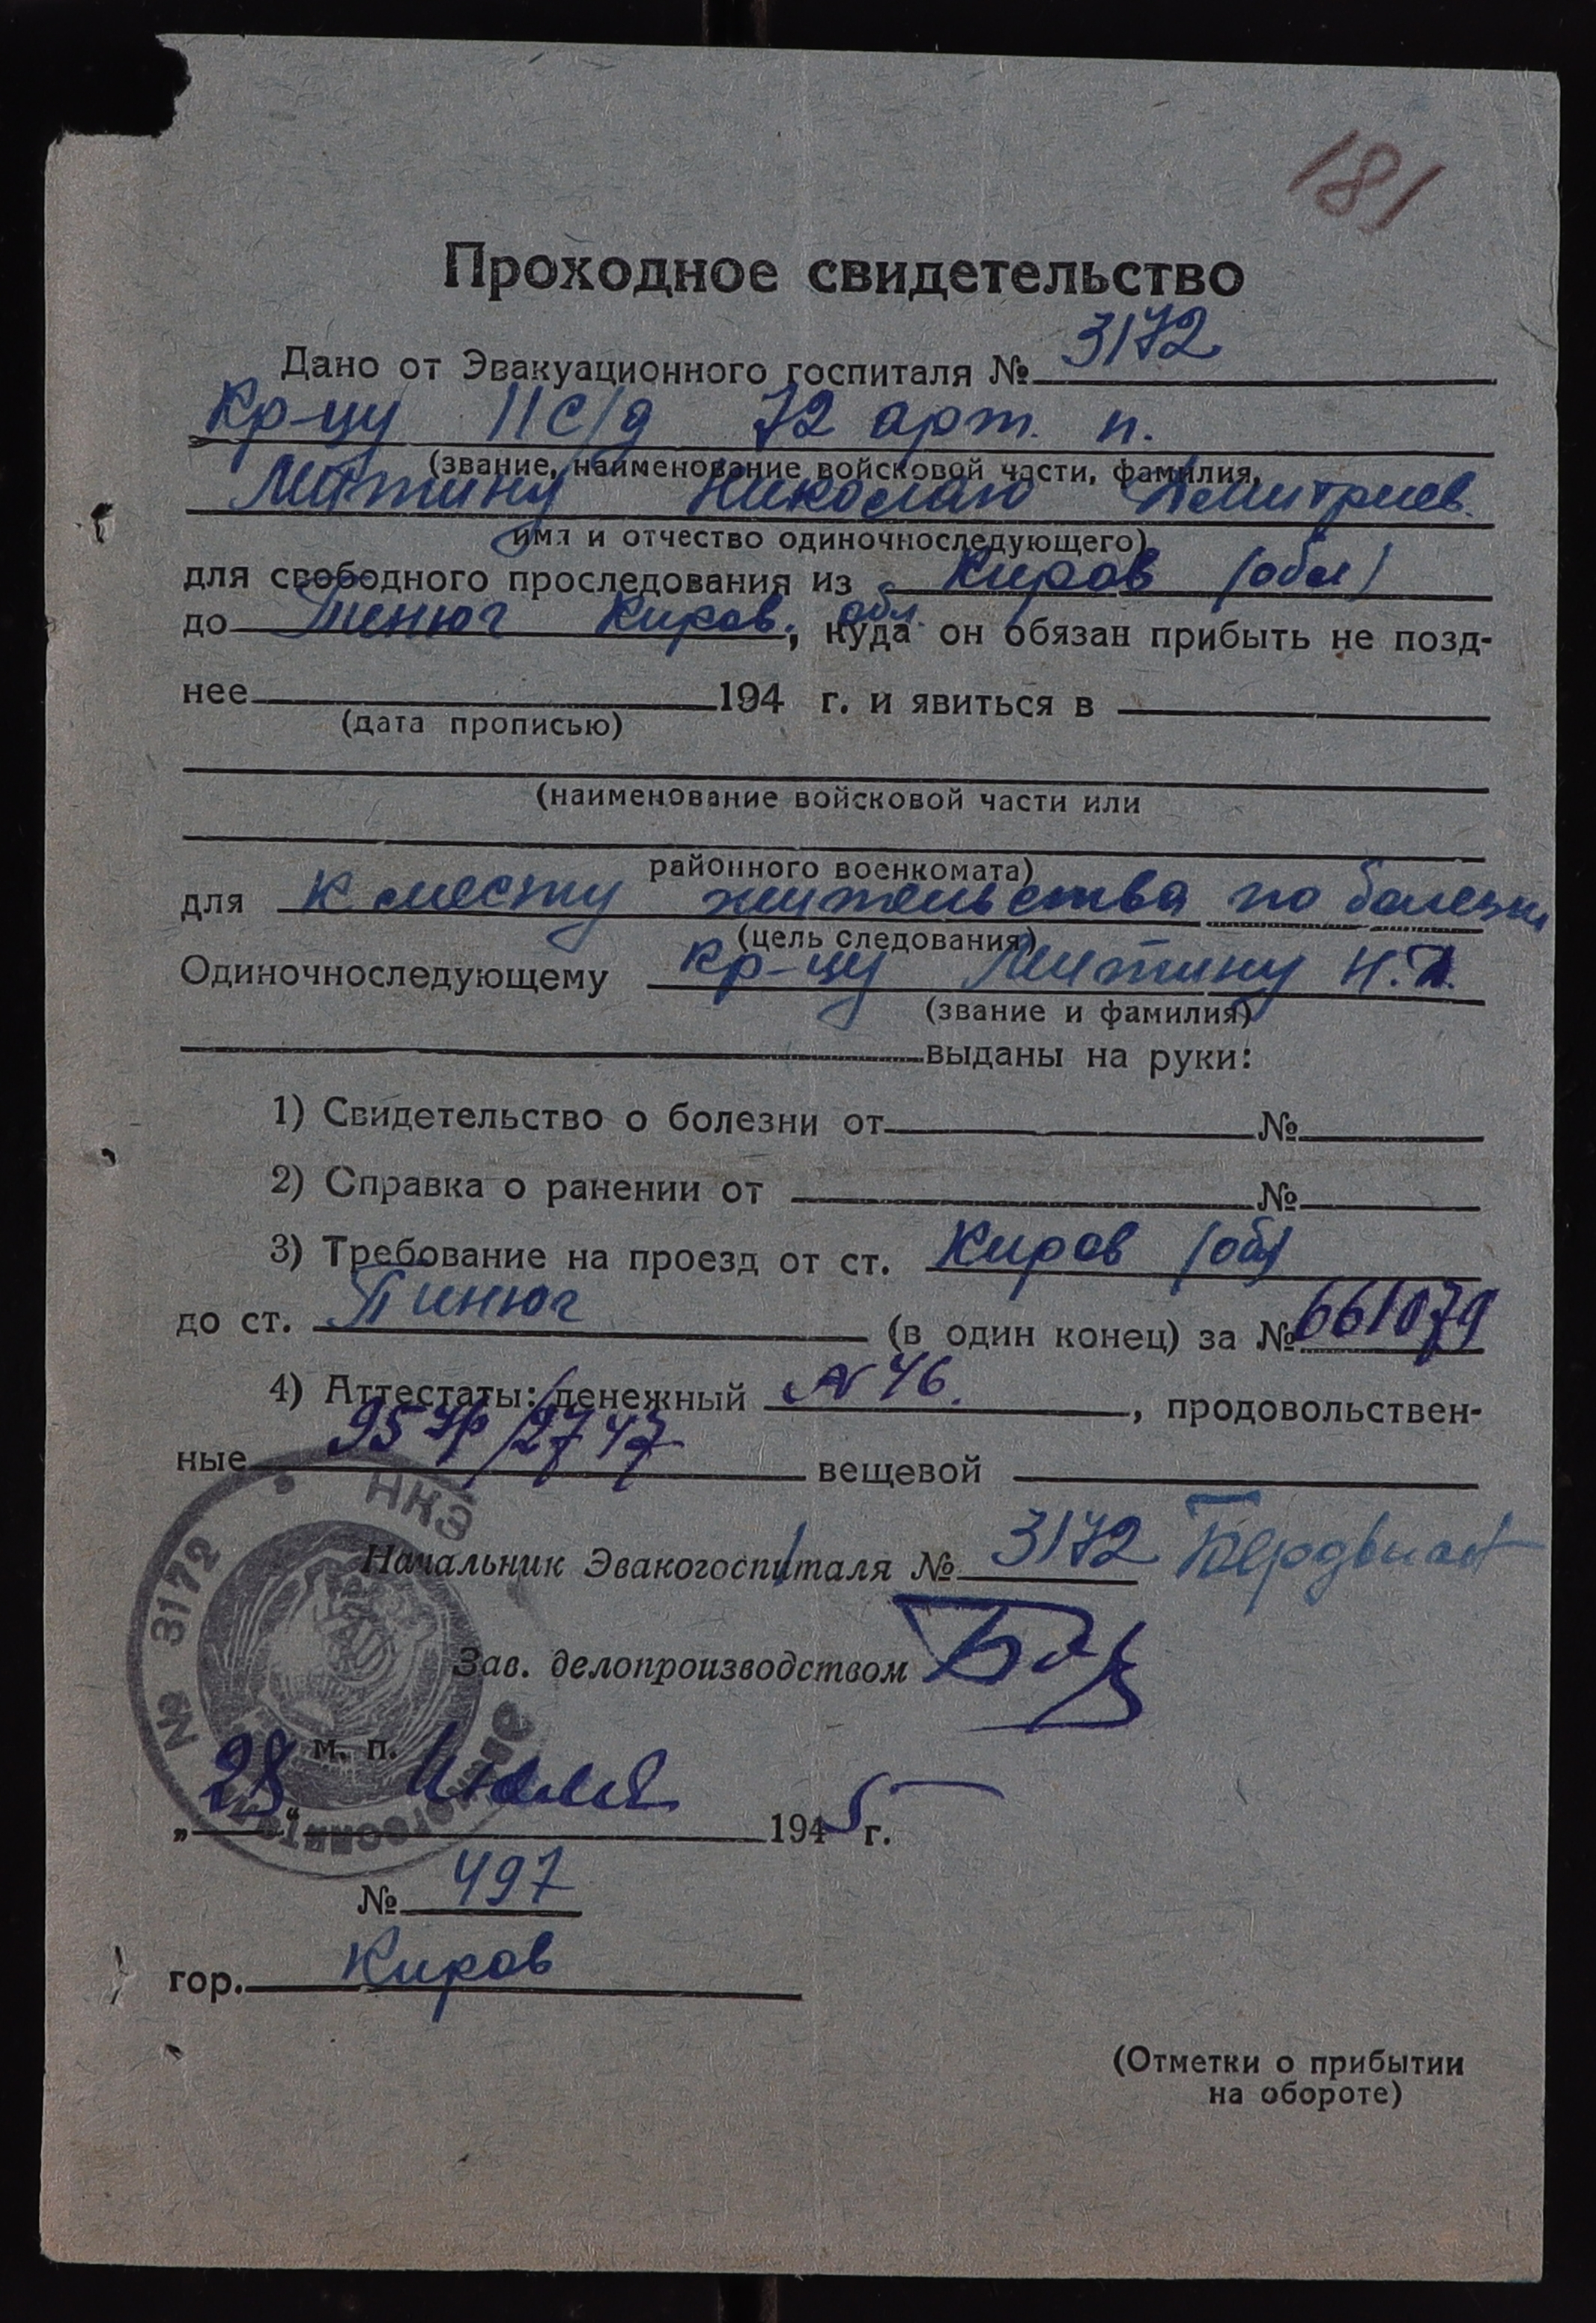 181
Проходное свидетельство
Дано от Эвакуационного госпиталя № 3172
Кр-цу 11 с/д 72 арт. п.
(звание, наименование войсковой части, фамилия,
Митину Николаю Дмитриев.
имя и отчество одиночноследующего)
для свободного проследования из Киров (обл)
до Пинюг Киров. обл., куда он обязан прибыть не позд-
нее 194 г. и явиться в
(дата прописью)
(наименование войсковой части или
районного военкомата)
для к месту жительства по болезни
(цель следования)
Одиночноследующему кр-цу Митину Н.Д.
(звание и фамилия)
выданы на руки:
1) Свидетельство о болезни от №
2) Справка о ранении от №
3) Требование на проезд от ст. Киров (обл)
до ст. Пинюг (в один конец) за № 661079
4) Аттестаты: денежный № 46., продовольствен-
ные /2747 вещевой
Начальник Эвакогоспиталя № 3172
Зав. делопроизводством
м. п.
„28“ Июля 1945 г.
№ 497
гор. Киров
(Отметки о прибытии
на обороте)
№ 3172 НКЭ